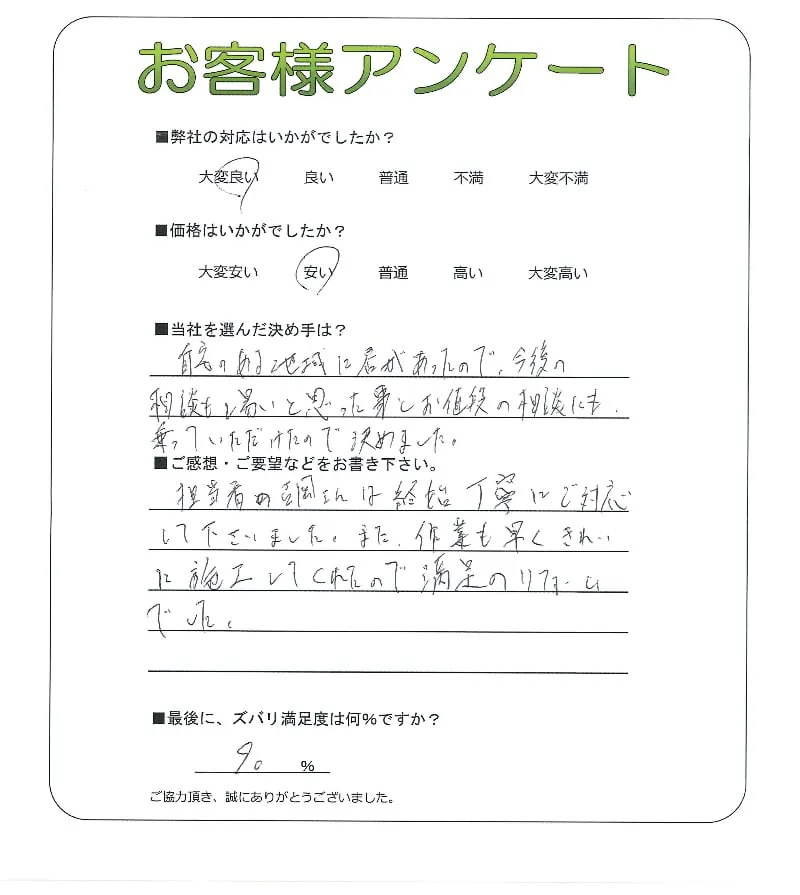 お客様アンケート
■弊社の対応はいかがでしたか？
大変良い 良い 普通 不満 大変不満
■価格はいかがでしたか？
大変安い 安い 普通 高い 大変高い
■当社を選んだ決め手は？
自宅のある地域に店があったので、今後の
相談もし易いと思った事とお値段の相談にも
乗っていただけたので決めました。
■ご感想・ご要望などをお書き下さい。
担当者の岡さんは終始丁寧にご対応
して下さいました。また、作業も早くきれい
に施工してくれたので満足のリフォーム
でした。
■最後に、ズバリ満足度は何％ですか？
90 ％
ご協力頂き、誠にありがとうございました。